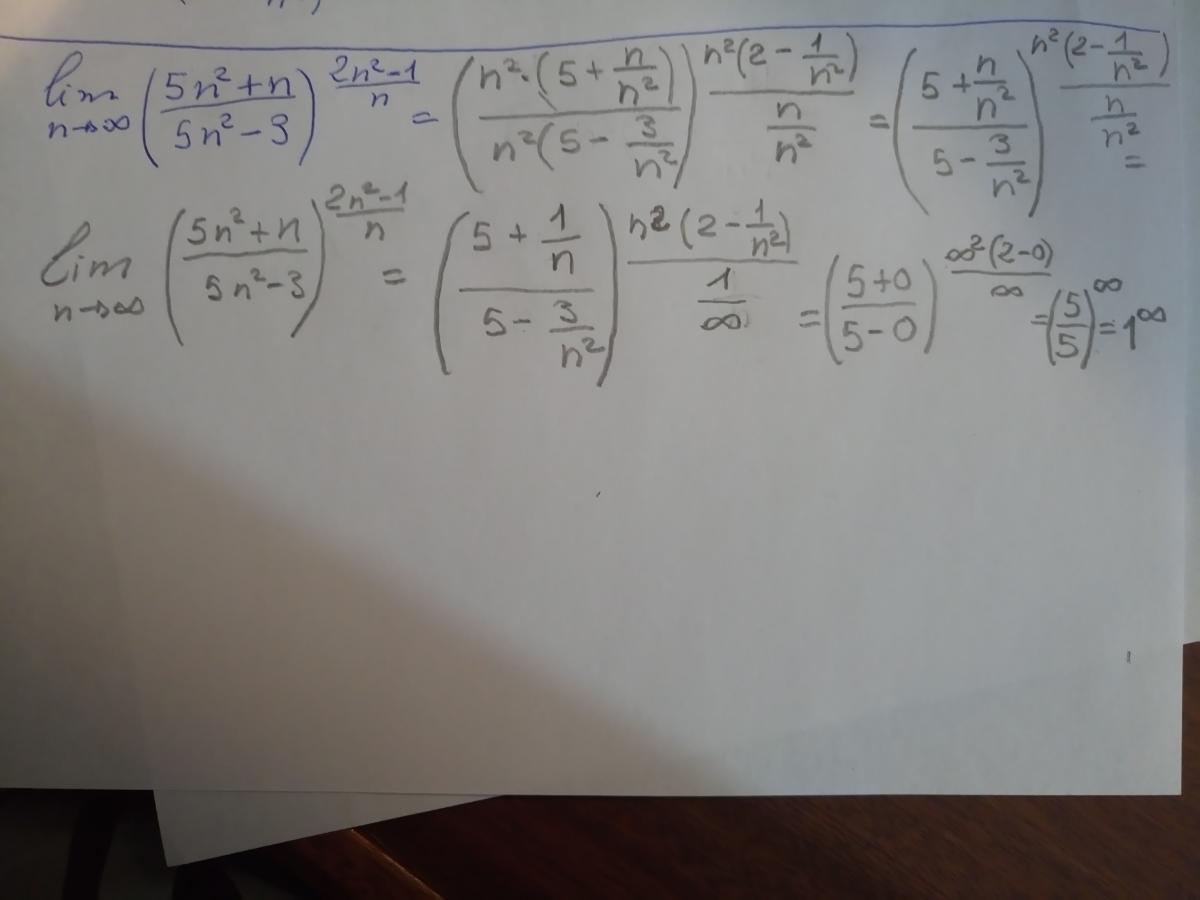 lim n→∞ ((5n²+n)/(5n²-3))^((2n²-1)/n) = ((n²·(5+n/n²))/(n²(5-3/n²))^((n²(2-1/n²))/(n/n²)) = ((5+n/n²)/(5-3/n²))^((n²(2-1/n²))/(n/n²)) =
lim n→∞ ((5n²+n)/(5n²-3))^((2n²-1)/n) = ((5+1/n)/(5-3/n²))^((n²(2-1/n²))/(1/∞)) = ((5+0)/(5-0))^((∞²(2-0))/∞) = (5/5)^∞ = 1^∞